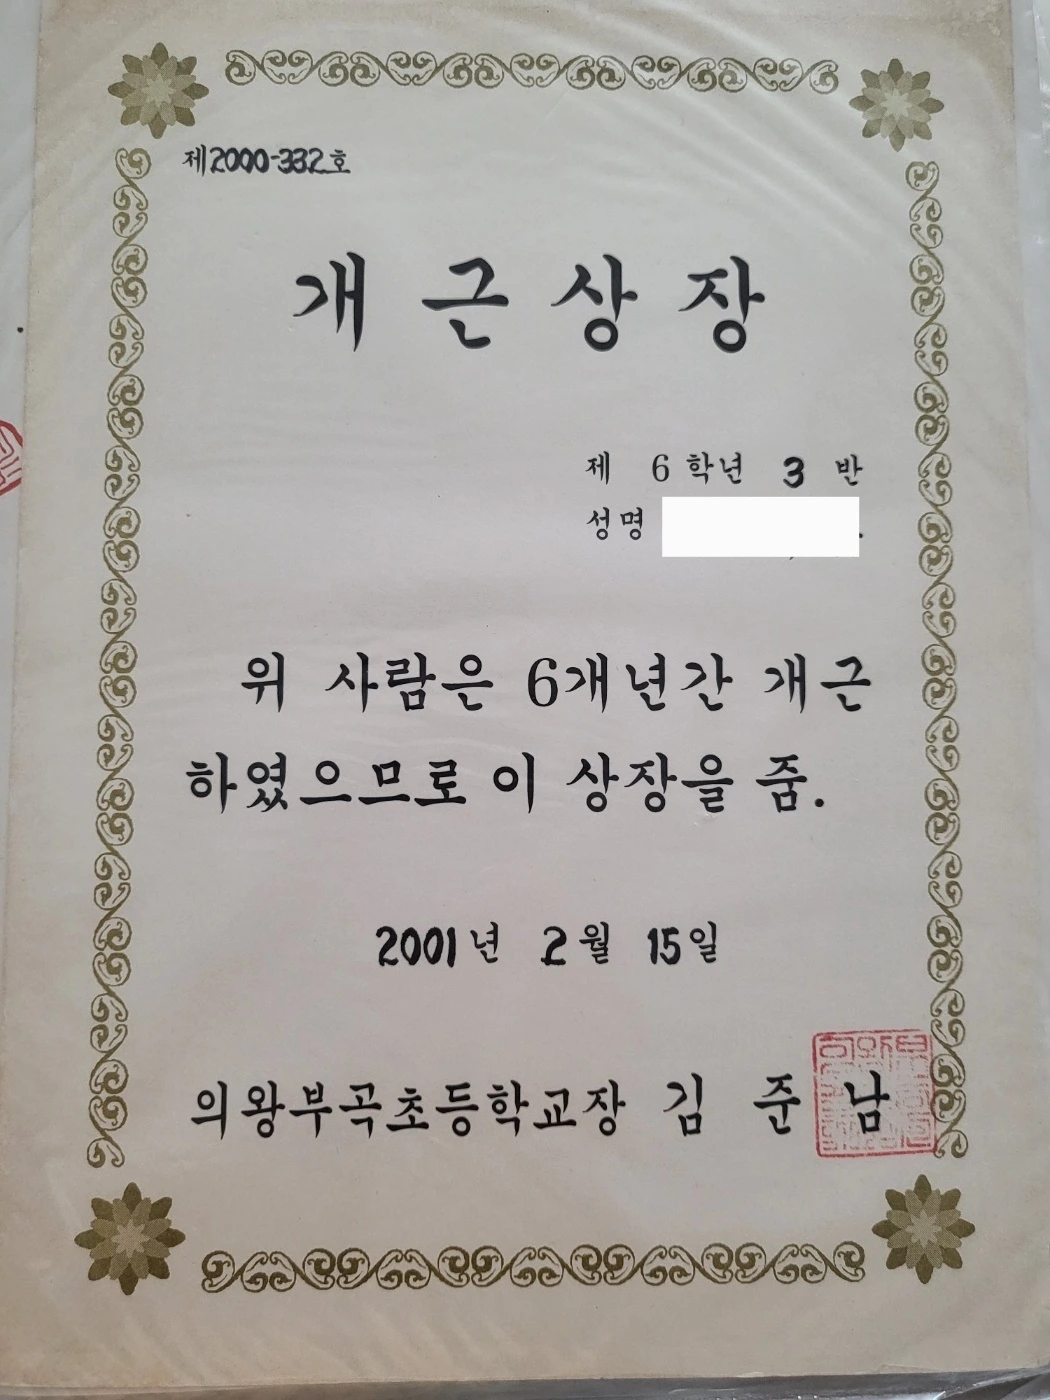 제2000-332호
개근상장
제 6 학년 3 반
성명
위 사람은 6개년간 개근
하였으므로 이 상장을 줌.
2001년 2월 15일
의왕부곡초등학교장 김 준 남